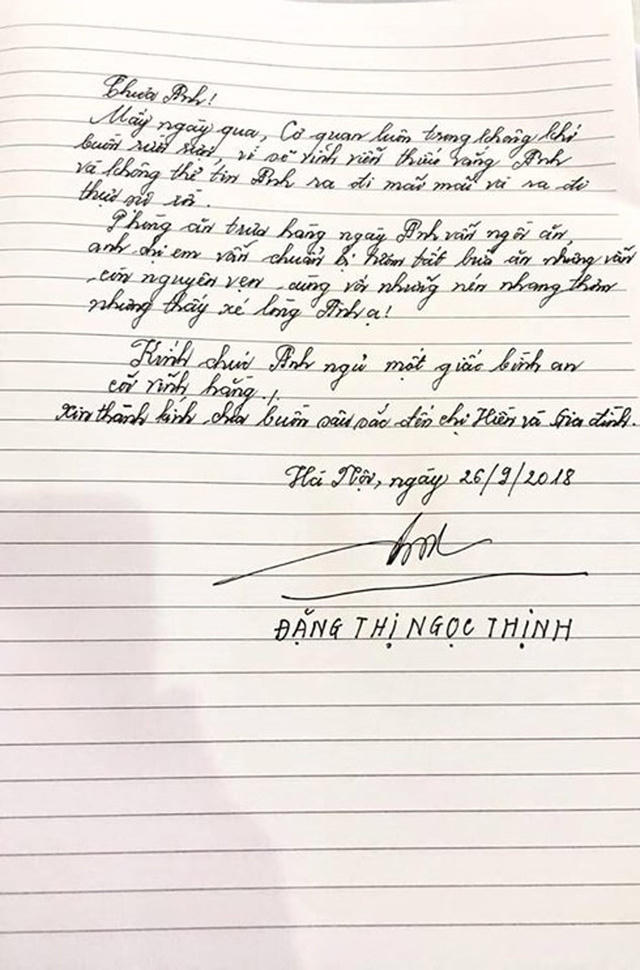 Thưa Anh!
Mấy ngày qua, Cơ quan luôn trong không khí
buồn rười rượi, vì sẽ vĩnh viễn thiếu vắng Anh
và không thể tin Anh ra đi mãi mãi và ra đi
thật sự rồi.
Phòng ăn trưa hàng ngày Anh vẫn ngồi ăn,
anh chị em vẫn chuẩn bị tươm tất bữa ăn nhưng vẫn
còn nguyên vẹn, cùng với những nén nhang thơm
nhưng thấy xé lòng Anh ạ!
Kính chúc Anh ngủ một giấc bình an
cõi vĩnh hằng./.
xin thành kính chia buồn sâu sắc đến chị Hiền và Gia đình.
Hà Nội, ngày 26/9/2018
ĐẶNG THỊ NGỌC THỊNH